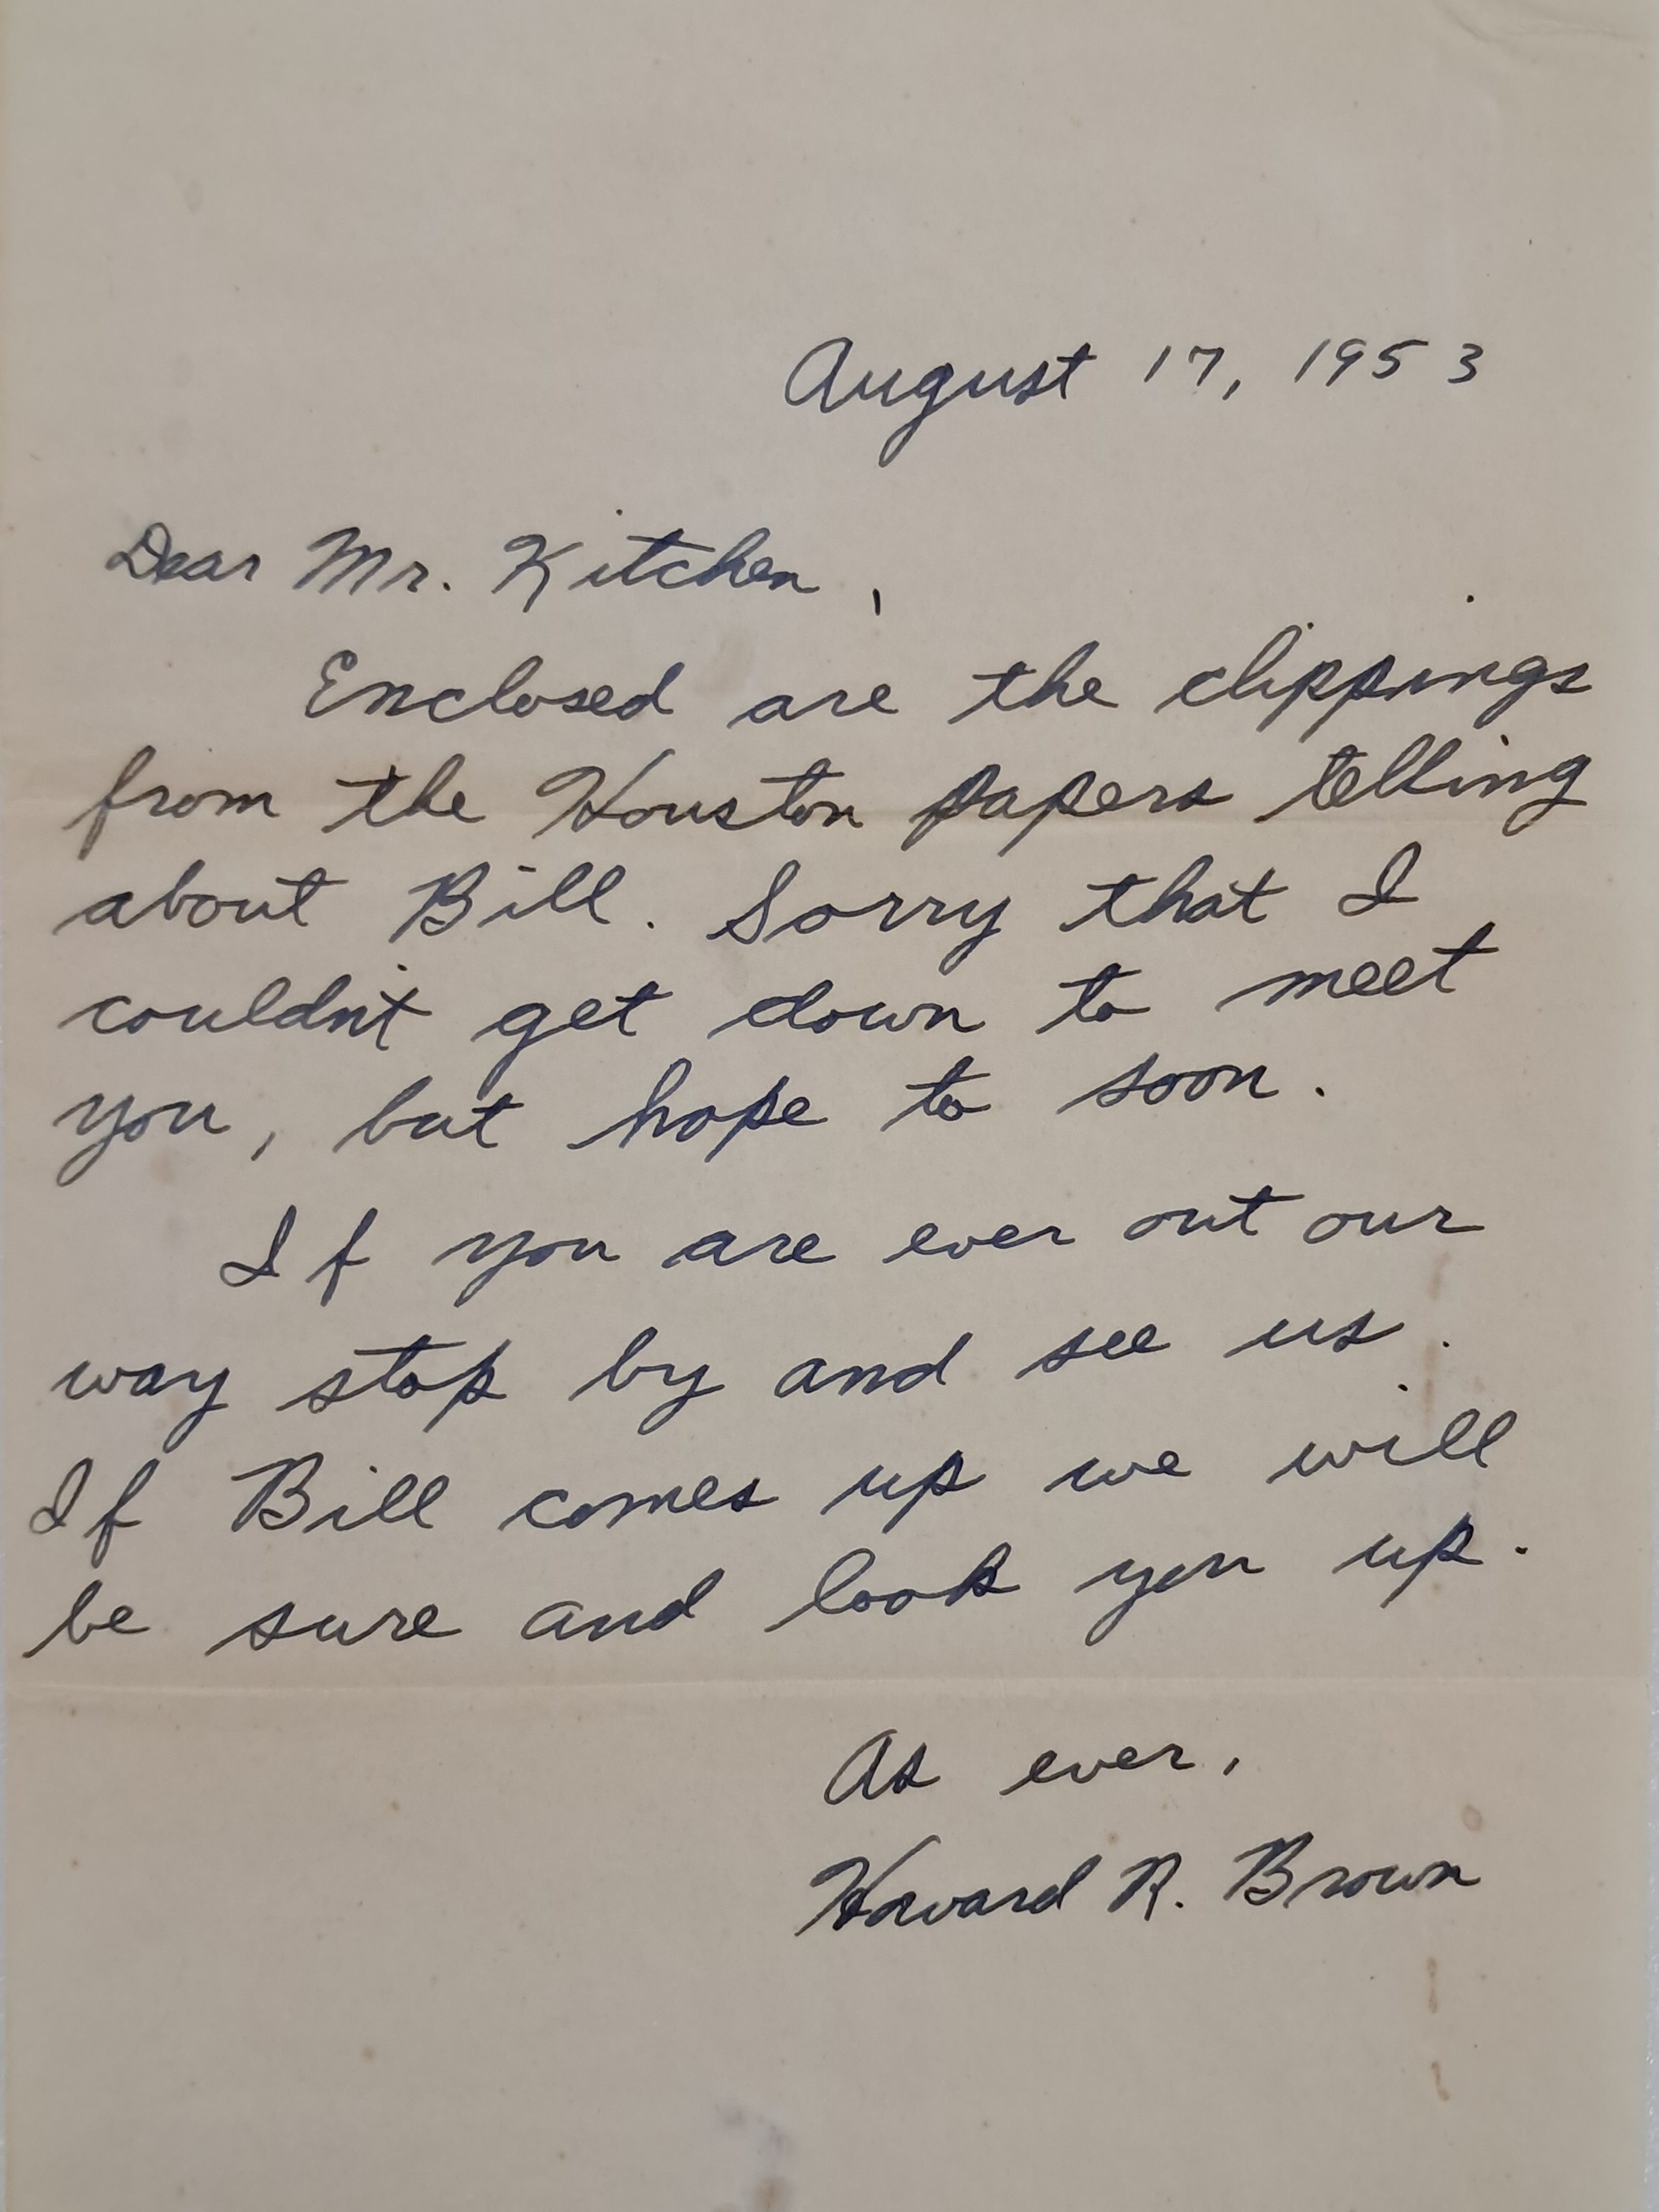 August 17, 1953
Dear Mr. Kitchen,
Enclosed are the clippings
from the Houston papers telling
about Bill. Sorry that I
couldn't get down to meet
you, but hope to soon.
If you are ever out our
way stop by and see us.
If Bill comes up we will
be sure and look you up.
As ever,
Howard R. Brown